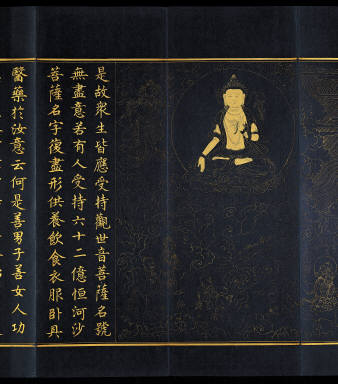 是故眾生皆應受持觀世音菩薩名號
無盡意若有人受持六十二億恒河沙
菩薩名字復盡形供養飲食衣服臥具
醫藥於汝意云何是善男子善女人功